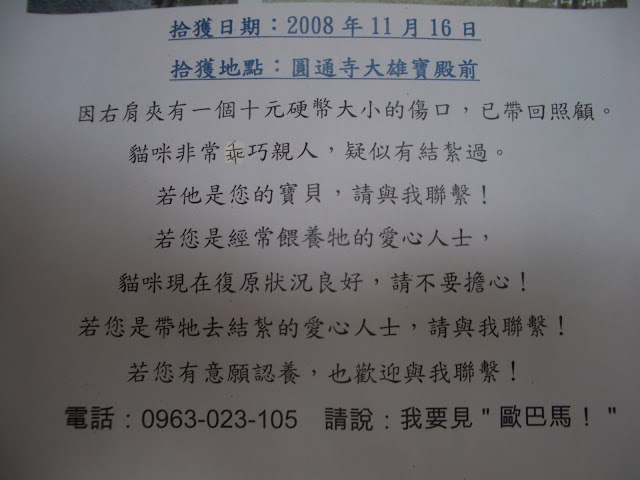 拾獲日期：2008 年 11 月 16 日
拾獲地點：圓通寺大雄寶殿前
因右肩夾有一個十元硬幣大小的傷口，已帶回照顧。
貓咪非常乖巧親人，疑似有結紮過。
若他是您的寶貝，請與我聯繫！
若您是經常餵養牠的愛心人士，
貓咪現在復原狀況良好，請不要擔心！
若您是帶牠去結紮的愛心人士，請與我聯繫！
若您有意願認養，也歡迎與我聯繫！
電話：0963-023-105　請說：我要見＂歐巴馬！＂